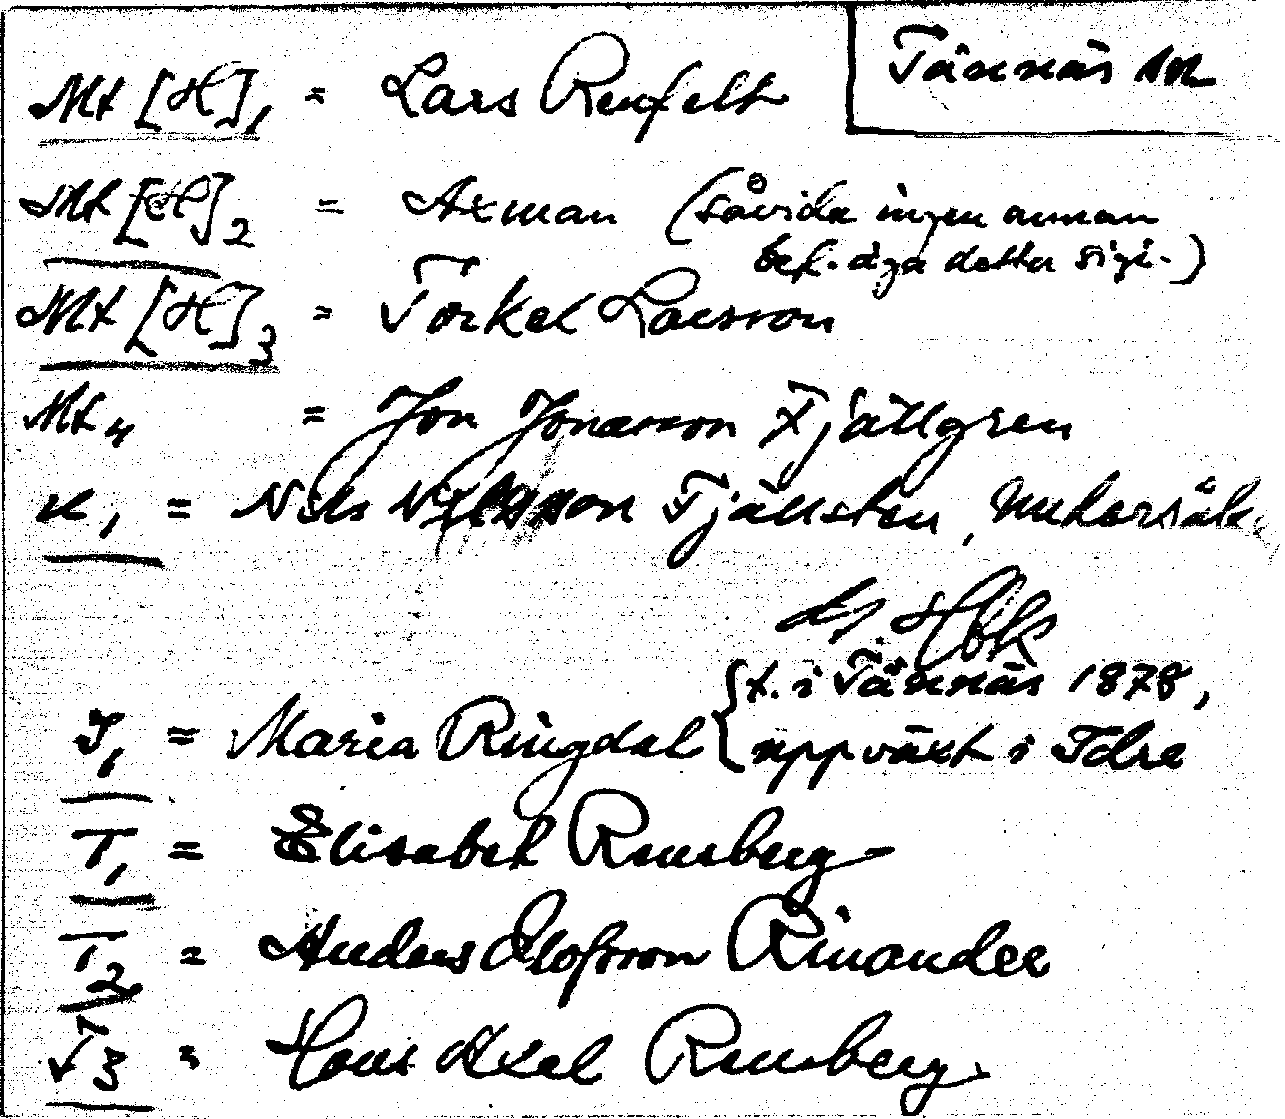 Tännäs sn
Mt [H]1 = Lars Renfelt
Mt [H]2 = Axman (såvida ingen annan
bef. äga detta sigi.)
Mt [H]3 = Torkel Larsson
Mt4 = Jon Jonasson Fjällgren
K1 = Nils Nilsson Fjällsten, Undersåk
Maria Ringdal
{f. i Tännäs 1878,
J1 = uppväxt i Idre
T1 = Elisabet Rensberg
T2 = Anders Olofsson Rinander
T3 = Hans Axel Rensberg